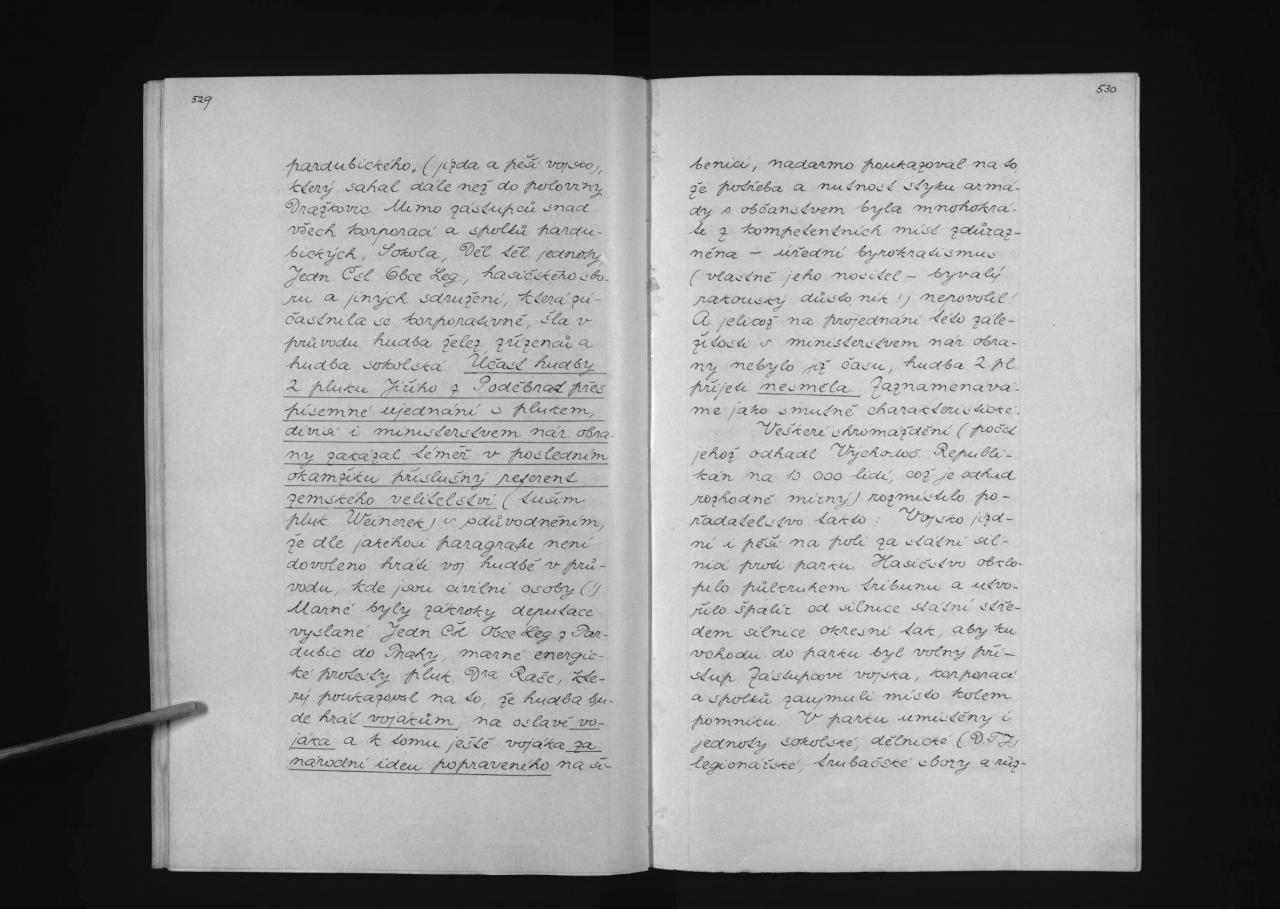 529
pardubického. (jízda a pěší vojsko),
který sahal dále než do poloviny
Dražkovic. Mimo zástupců snad
všech korporací a spolků pardu-
bických, Sokola, Děl. těl. jednoty,
Jedn. Čsl. Obce Leg., hasičského sbo-
ru a jiných sdružení, která zú-
častnila se korporativně, šla v
průvodu hudba želez. zřízenců a
hudba sokolská. Účast hudby
2 pluku Jiřího z Poděbrad přes
písemné ujednání s plukem,
divisí i ministerstvem nár. obra-
ny zakázal téměř v posledním
okamžiku příslušný referent
zemského velitelství (tuším
pluk. Weinerek) s odůvodněním,
že dle jakéhosi paragrafu není
dovoleno hráti voj. hudbě v prů-
vodu, kde jsou civilní osoby (!)
Marné byly zákroky deputace
vyslané Jedn. Čsl. Obce Leg. z Par-
dubic do Prahy, marné energic-
ké protesty pluk. Dra Raše, kte-
rý poukazoval na to, že hudba bu-
de hrát vojákům, na oslavě vo-
jáka a k tomu ještě vojáka za
národní ideu popraveného na ši-
530
benici, nadarmo poukazoval na to,
že potřeba a nutnost styku armá-
dy s občanstvem byla mnohokrá-
te z kompetentních míst zdůraz-
něna – úřední byrokratismus
(vlastně jeho nositel – bývalý
rakouský důstojník!) nepovolil!
A jelikož na projednání této zále-
žitosti s ministerstvem nár. obra-
ny nebylo již času, hudba 2 pl.
přijeti nesměla. Zaznamenává-
me jako smutně charakteristické.
Veškeré shromáždění (počet
jehož odhadl Východoč. Republi-
kán na 15 000 lidí, což je odhad
rozhodně mírný) rozmístilo po-
řadatelstvo takto: Vojsko jízd-
ní i pěší na poli za státní sil-
nicí proti parku. Hasičstvo obklo-
pilo půlkruhem tribunu a utvo-
řilo špalír od silnice státní stře-
dem silnice okresní tak, aby ku
vchodu do parku byl volný pří-
stup. Zástupcové vojska, korporací
a spolků zaujmuli místo kolem
pomníku. V parku umístěny i
jednoty sokolské, dělnické (DTJ)
legionářské, trubačské sbory a růz-